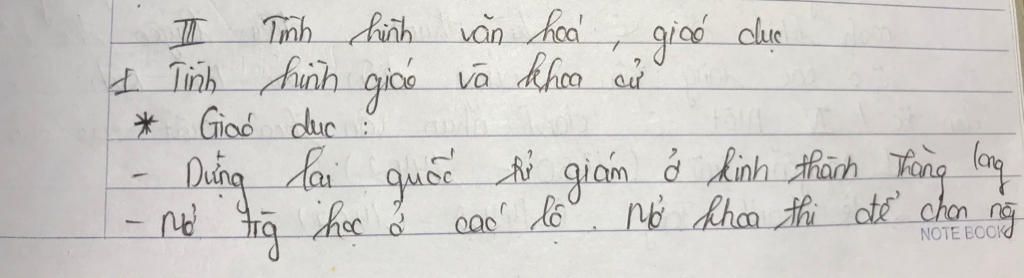 III Tình hình văn hoá, giáo dục
1 Tình hình giáo và khoa cử
* Giáo dục :
- Dựng lại quốc tử giám ở kinh thành Thăng long
- Mở trg học ở các lộ. Mở khoa thi để chọn ng
NOTE BOOK